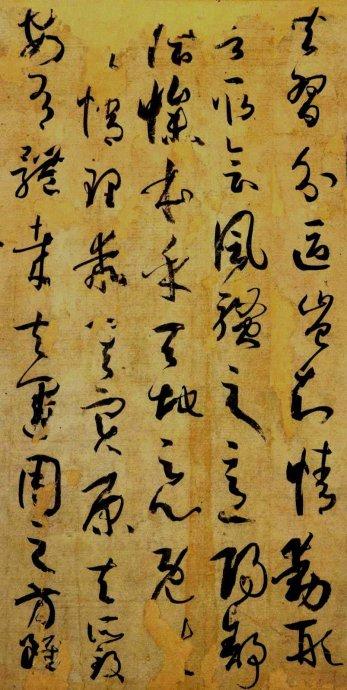 共習分區豈知情動形
言取會風騷之意陽舒
陰慘本乎天地之心既
情理乖其實原夫所致
安有體哉夫運用之方雖